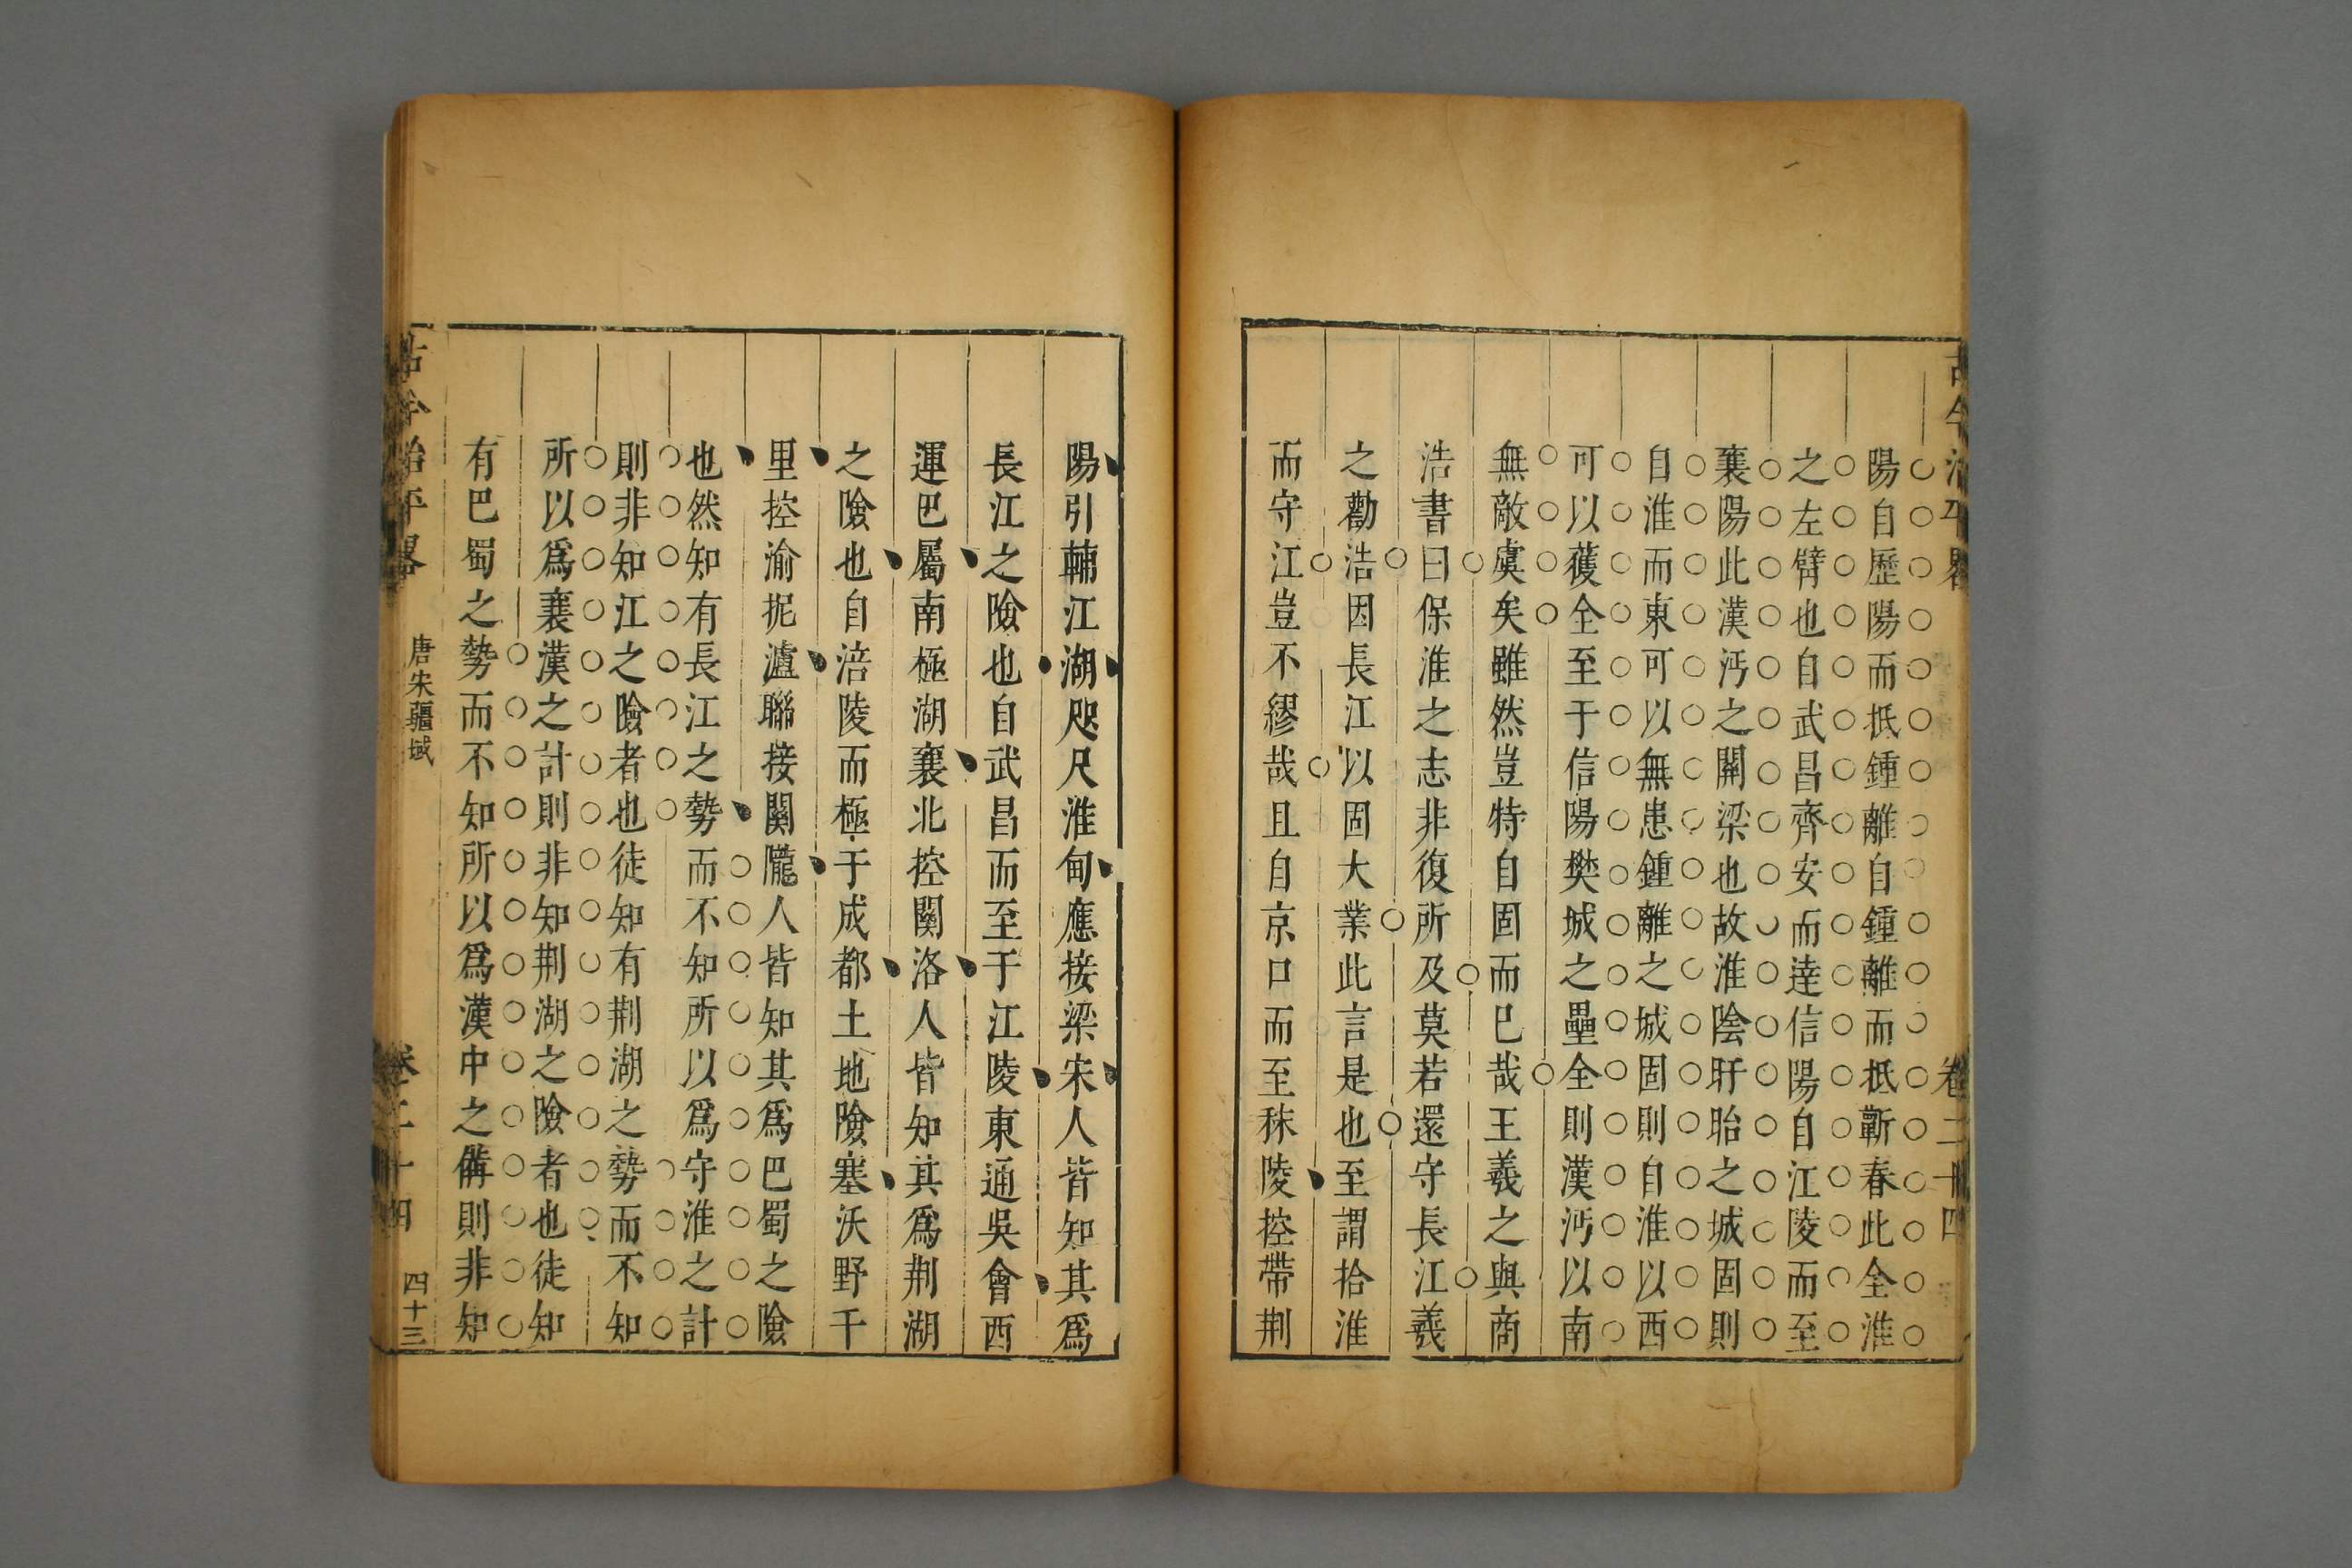 古今治平畧
卷二十四
陽自歷陽而抵鍾離自鍾離而抵蘄春此全淮
之左臂也自武昌齊安而達信陽自江陵而至
襄陽此漢沔之關梁也故淮陰盱眙之城固則
自淮而東可以無患鍾離之城固則自淮以西
可以獲全至于信陽樊城之壘全則漢沔以南
無敵虞矣雖然豈特自固而已哉王羲之與商
浩書曰保淮之志非復所及莫若還守長江羲
之勸浩因長江以固大業此言是也至謂拾淮
而守江豈不繆哉且自京口而至秣陵控帶荆
陽引輔江湖咫尺淮甸應接梁宋人皆知其爲
長江之險也自武昌而至于江陵東通吳會西
運巴屬南極湖襄北控關洛人皆知其爲荆湖
之險也自涪陵而極于成都土地險塞沃野千
里控渝扼瀘聯接關隴人皆知其爲巴蜀之險
也然知有長江之勢而不知所以爲守淮之計
則非知江之險者也徒知有荆湖之勢而不知
所以爲襄漢之計則非知荆湖之險者也徒知
有巴蜀之勢而不知所以爲漢中之備則非知
古今治平畧
唐宋疆域
卷二十四
四十三